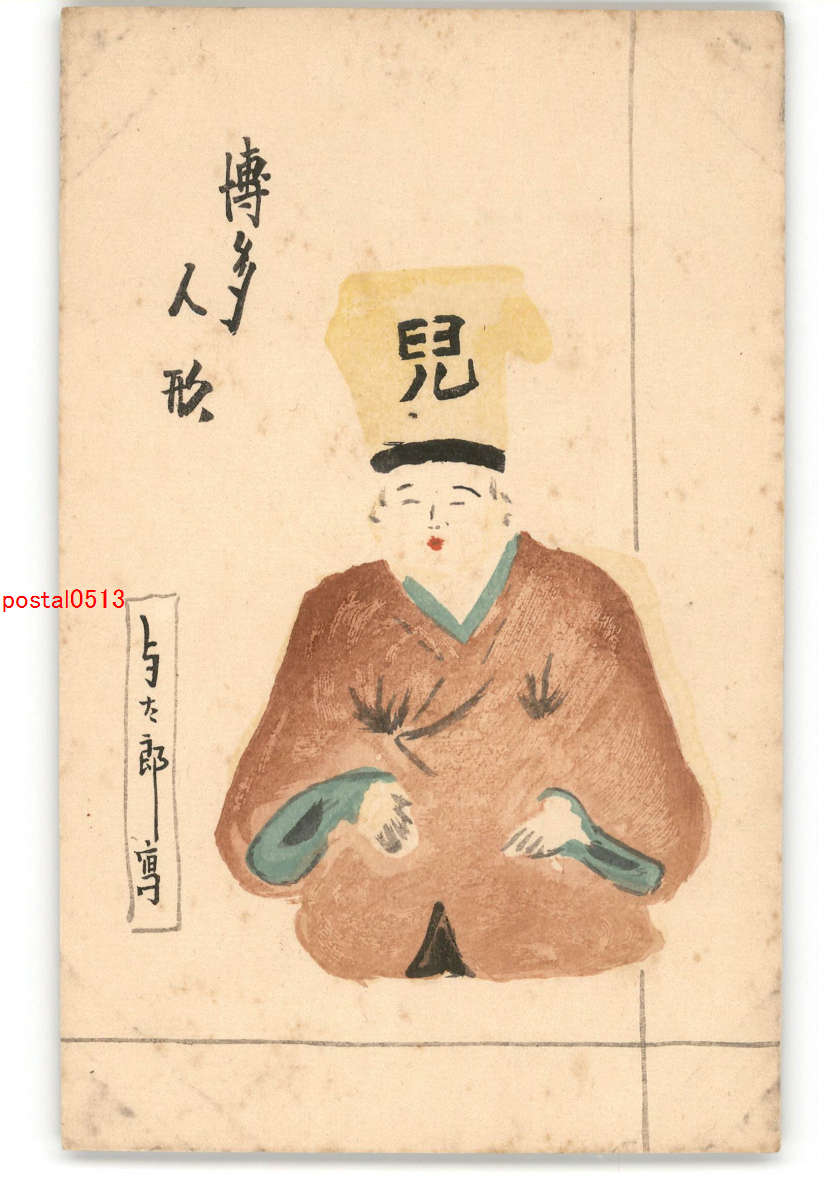 博多
人形
兒
与太郎寫
postal0513